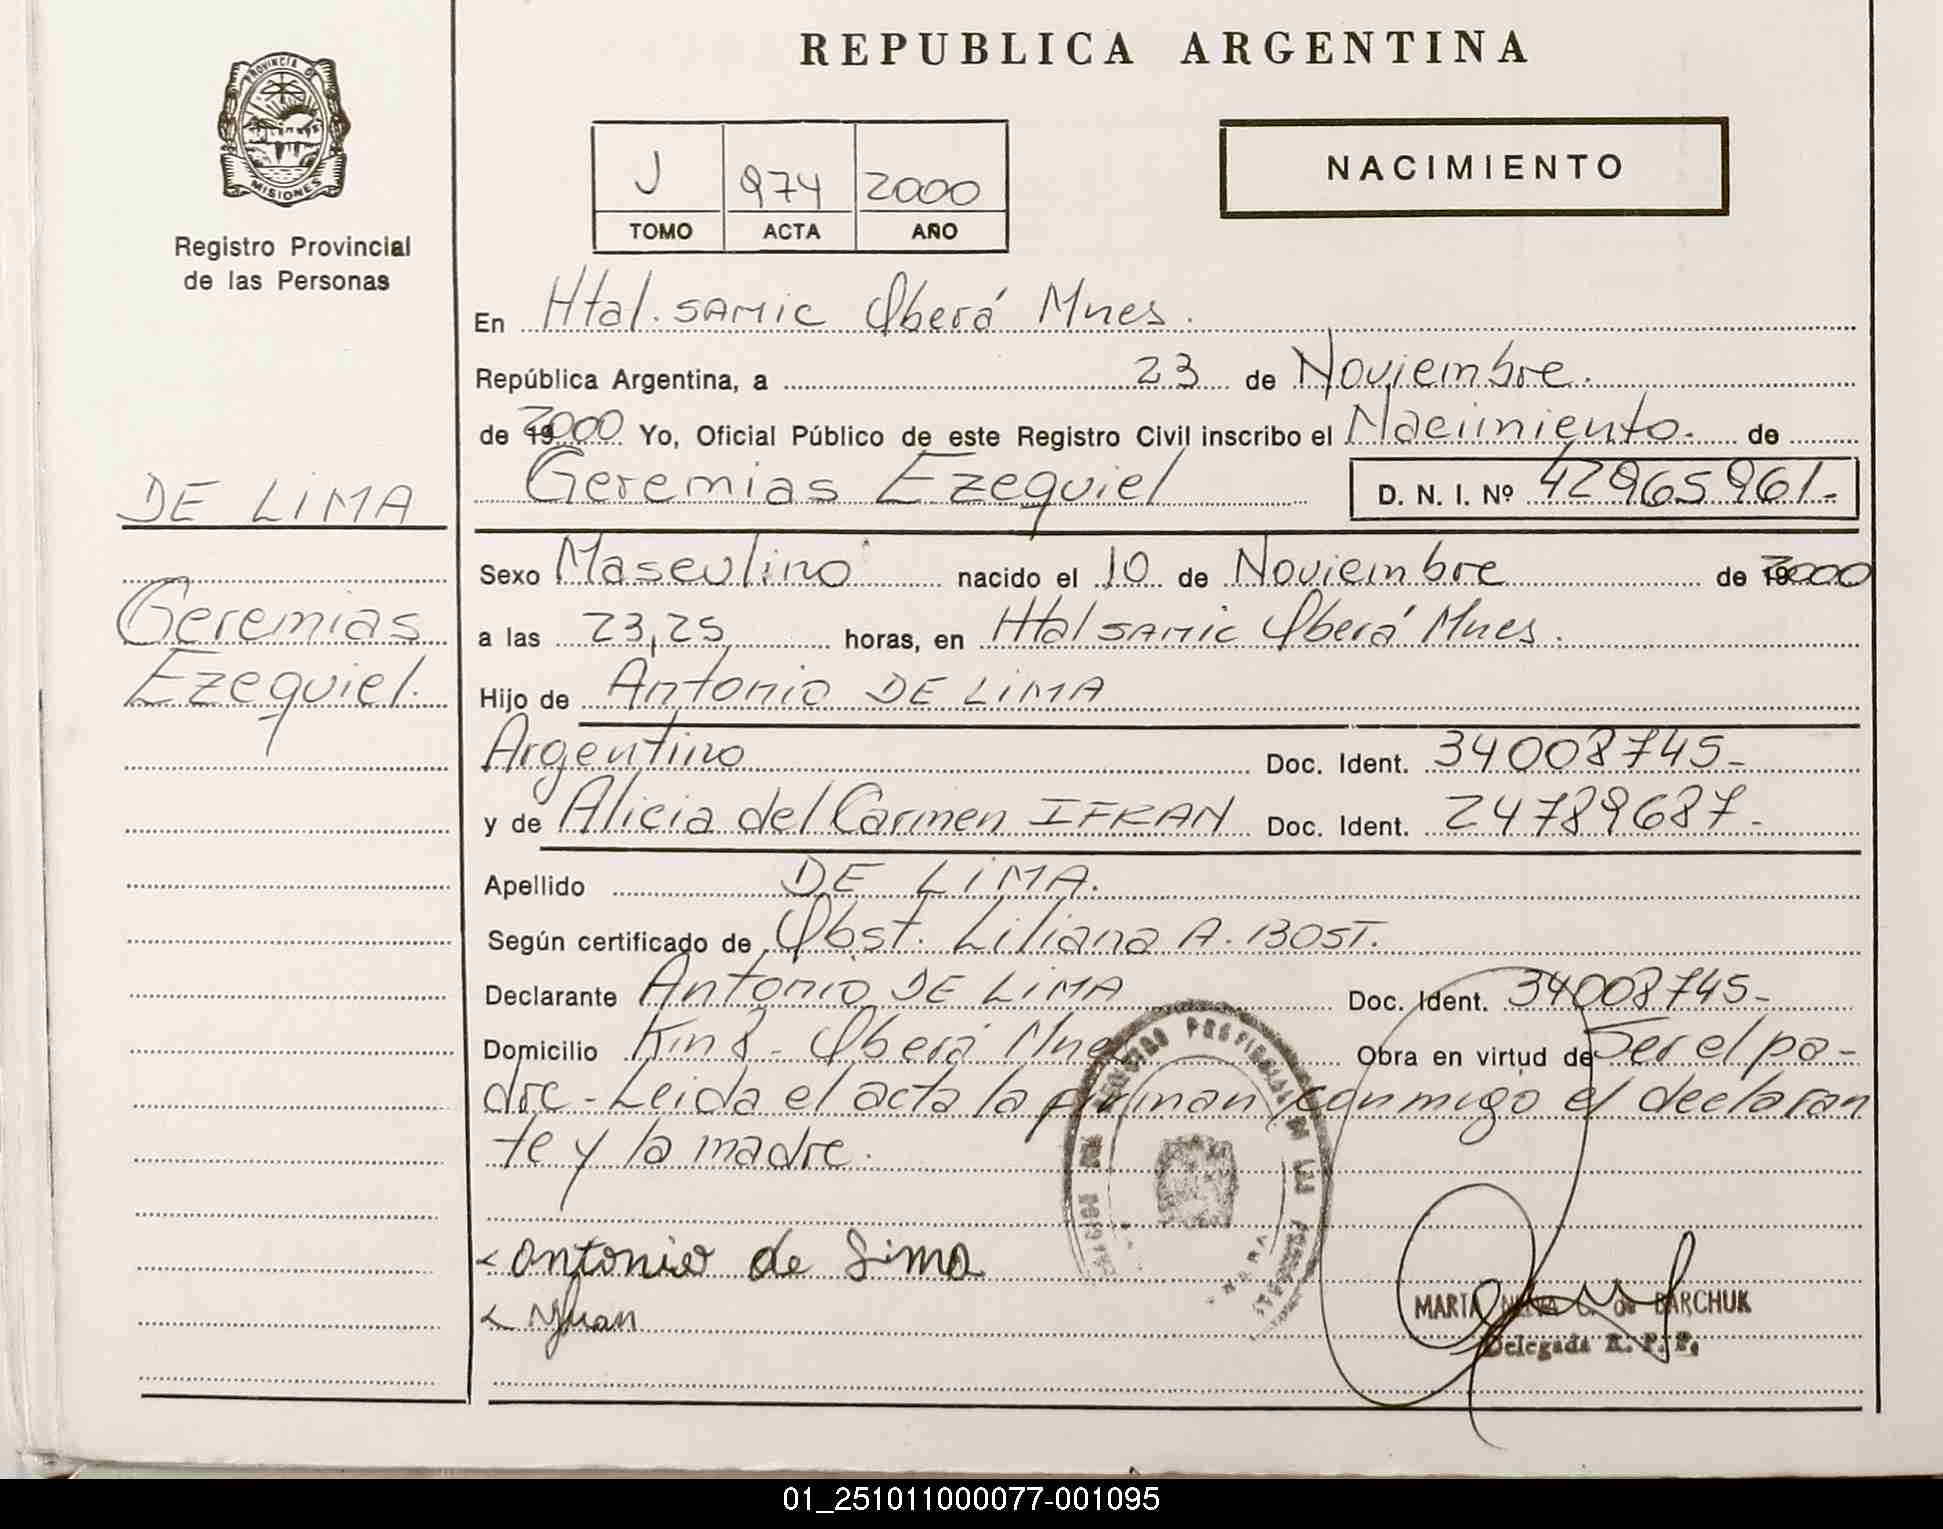 REPUBLICA ARGENTINA
PROVINCIA DE
MISIONES
Registro Provincial
de las Personas
J 974 2000
TOMO ACTA AÑO
NACIMIENTO
En Htal. SAMIC Oberá Mnes.
República Argentina, a 23 de Noviembre.
de 2000 Yo, Oficial Público de este Registro Civil inscribo el Nacimiento. de
Geremias Ezequiel D. N. I. Nº 42965961.-
DE LIMA
Geremias
Ezequiel.
Sexo Masculino nacido el 10 de Noviembre de 2000
a las 23,25 horas, en Htal SAMIC Oberá Mnes.
Hijo de Antonio DE LIMA
Argentino Doc. Ident. 34008745-
y de Alicia del Carmen IFRAN Doc. Ident. 24789687-
Apellido DE LIMA.
Según certificado de Obst. Liliana A. BOST.
Declarante Antonio DE LIMA Doc. Ident. 34008745-
Domicilio Km 8- Oberá Mnes Obra en virtud de Ser el pa-
dre- Leida el acta la firman conmigo el declaran
te y la madre.
Antonio de Lima
Yfran
MARTA C. de BARCHUK
Delegada R. P. P.
01_251011000077-001095